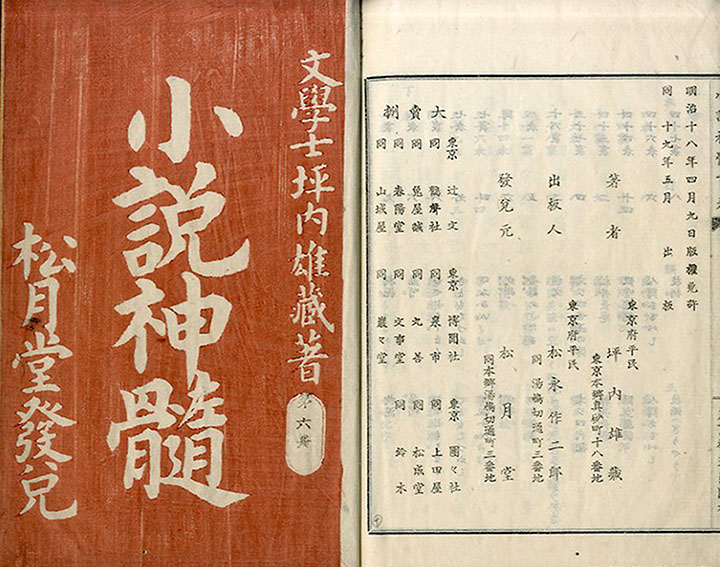 文學士坪内雄藏著
第六冊
小説神髓
松月堂發兌
明治十八年四月九日版權免許
同 十九年五月 出板
東京府平民
著者 坪内雄藏
東京本郷真砂町十八番地
東京府平民
出板人 松永作二郎
同湯嶋切通町三番地
發兌元 松月堂
同本郷湯嶋切通町三番地
東京 辻文 東京 博聞社 東京 團々社
大 同 鶴聲社 同 泉市 同 上田屋
賣 同 兎屋誠 同 丸善 同 松成堂
同 春陽堂 同 文事堂 同 鈴木
捌 同 山城屋 同 巖々堂